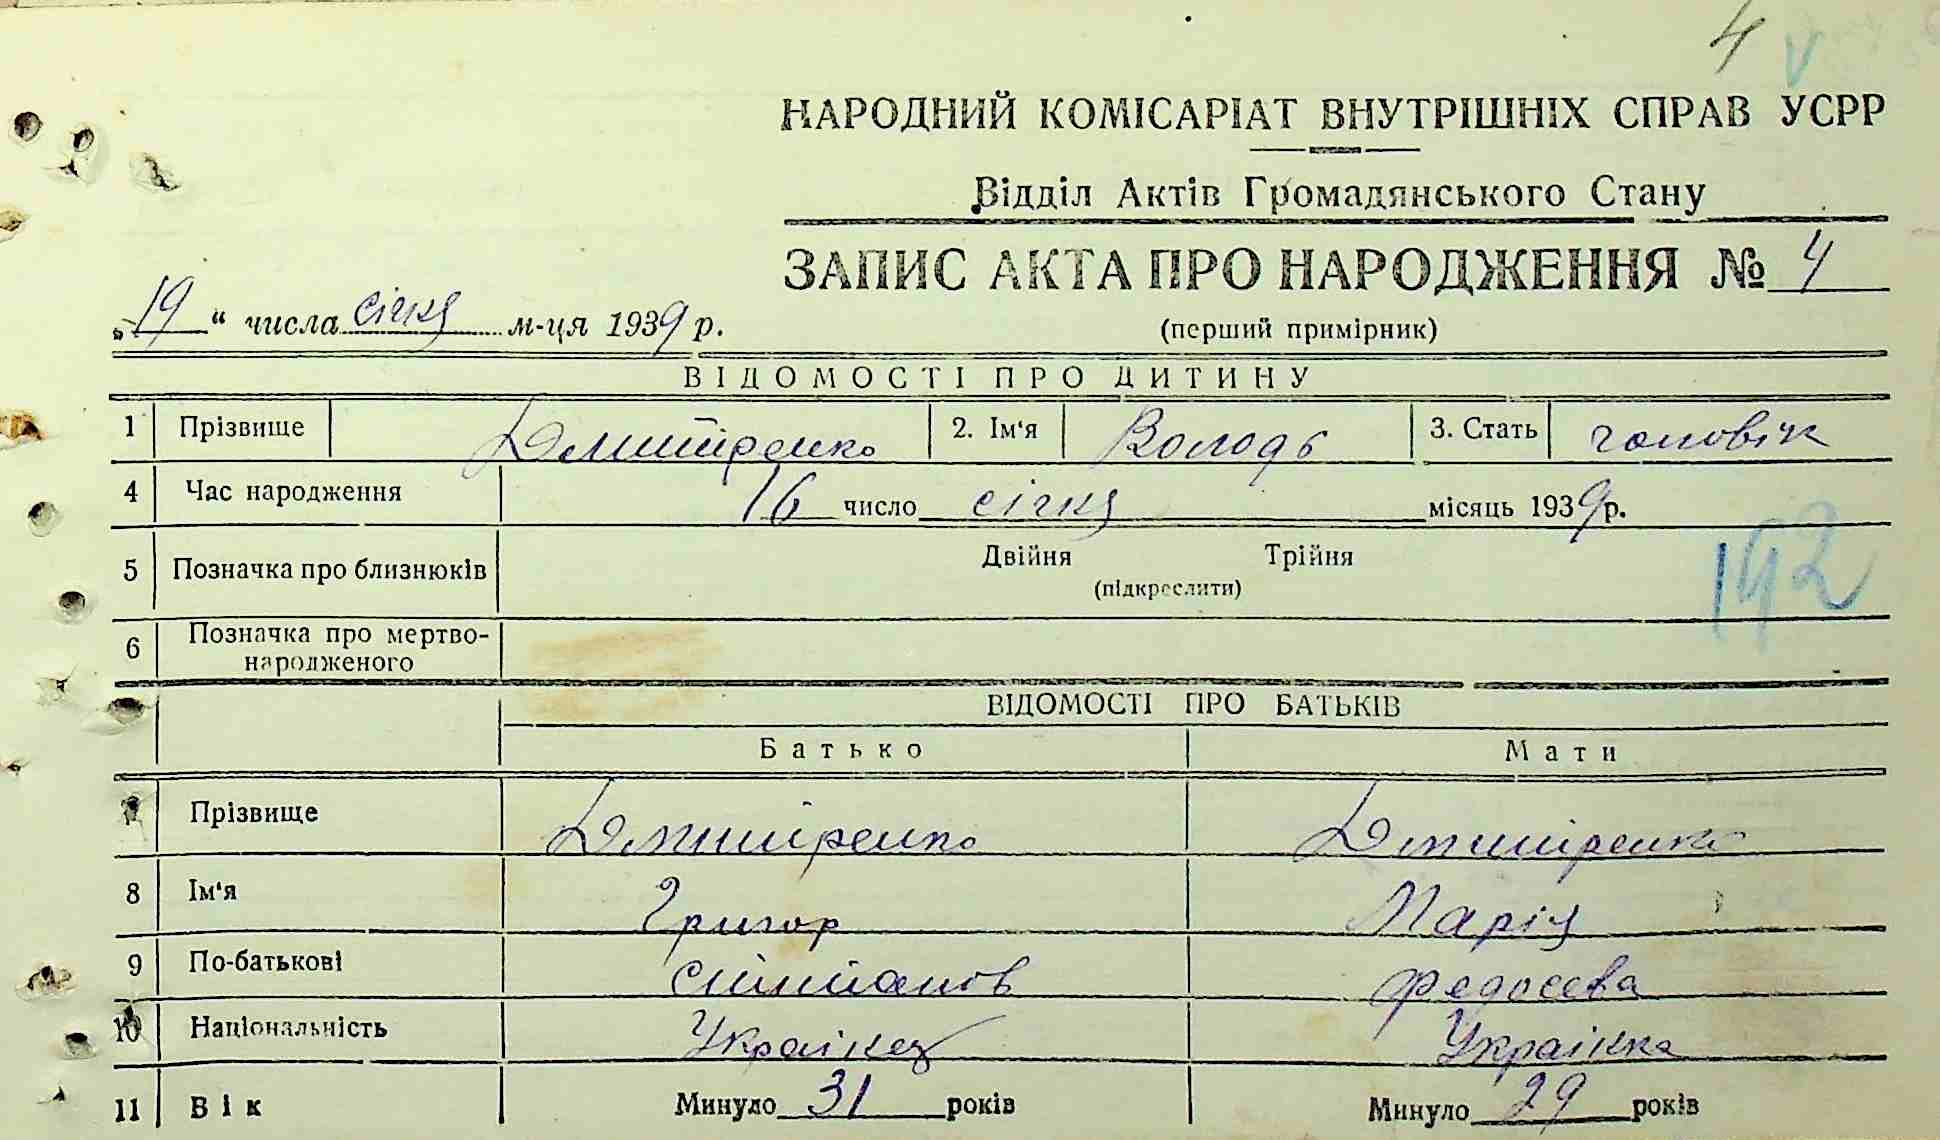 4 V
НАРОДНИЙ КОМІСАРІАТ ВНУТРІШНІХ СПРАВ УСРР
Відділ Актів Громадянського Стану
ЗАПИС АКТА ПРО НАРОДЖЕННЯ № 4
„19“ числа січня м-ця 1939 р.
(перший примірник)
ВІДОМОСТІ ПРО ДИТИНУ
1 Прізвище Дмитренко 2. Ім'я Володь 3. Стать чоловік
4 Час народження 16 число січня місяць 1939 р.
5 Позначка про близнюків Двійня Трійня
(підкреслити)
192
6 Позначка про мертво-
народженого
ВІДОМОСТІ ПРО БАТЬКІВ
Батько Мати
7 Прізвище Дмитренко Дмитренко
8 Ім'я Григор Марія
9 По-батькові Федосева
10 Національність Українец Украінка
11 Вік Минуло 31 років Минуло 29 років